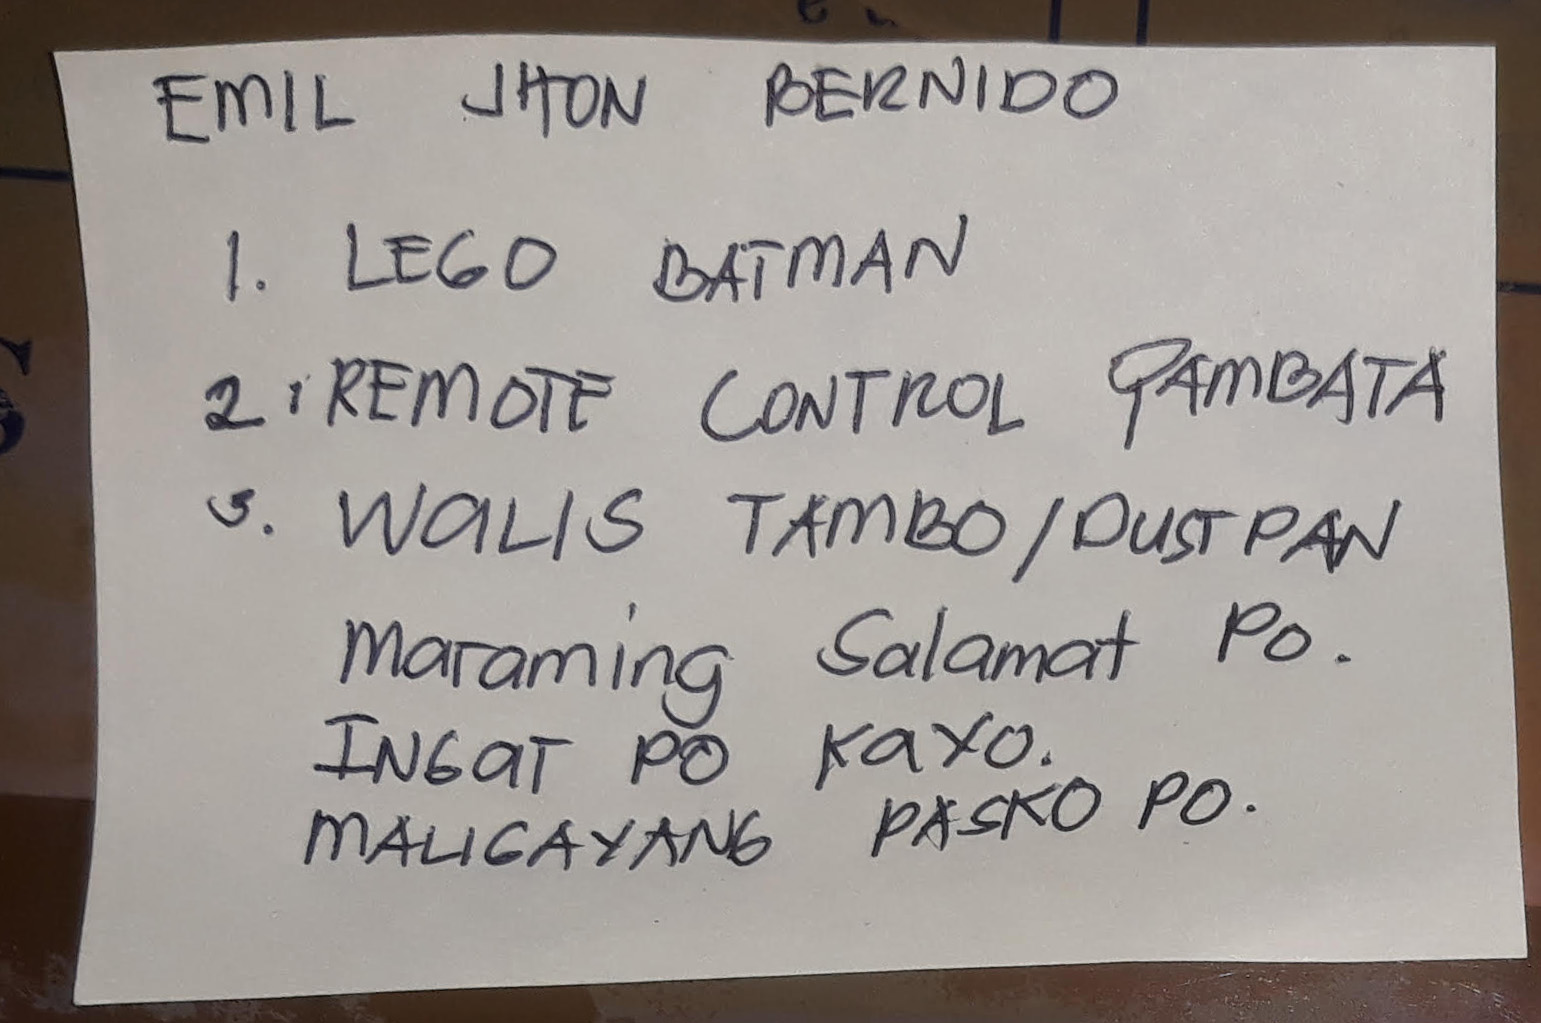 EMIL JHON BERNIDO
1. LEGO BATMAN
2. REMOTE CONTROL PAMBATA
3. WALIS TAMBO/DUSTPAN
Maraming Salamat Po.
INGAT PO KAYO.
MALIGAYANG PASKO PO.